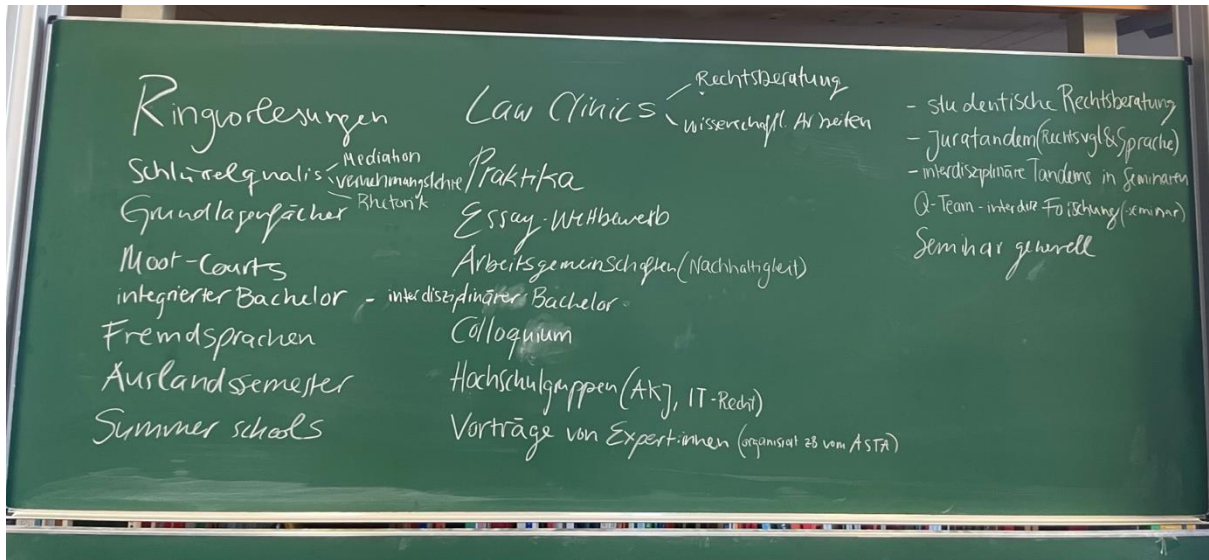 Ringvorlesungen
Schlüsselqualis
Mediation
Vernehmungslehre
Rhetorik
Grundlagenfächer
Moot-Courts
integrierter Bachelor - interdisziplinärer Bachelor
Fremdsprachen
Auslandssemester
Summer schools
Law Clinics
Rechtsberatung
wissenschaftl. Arbeiten
Praktika
Essay-Wettbewerb
Arbeitsgemeinschaften (Nachhaltigkeit)
Colloquium
Hochschulgruppen (AKJ, IT-Recht)
Vorträge von Expert:innen (organisiert zB vom ASTA)
- studentische Rechtsberatung
- Juratandem (Rechtsvgl & Sprache)
- interdisziplinäre Tandems in Seminaren
Q-Team - interdisz Forschung (-seminar)
Seminar generell